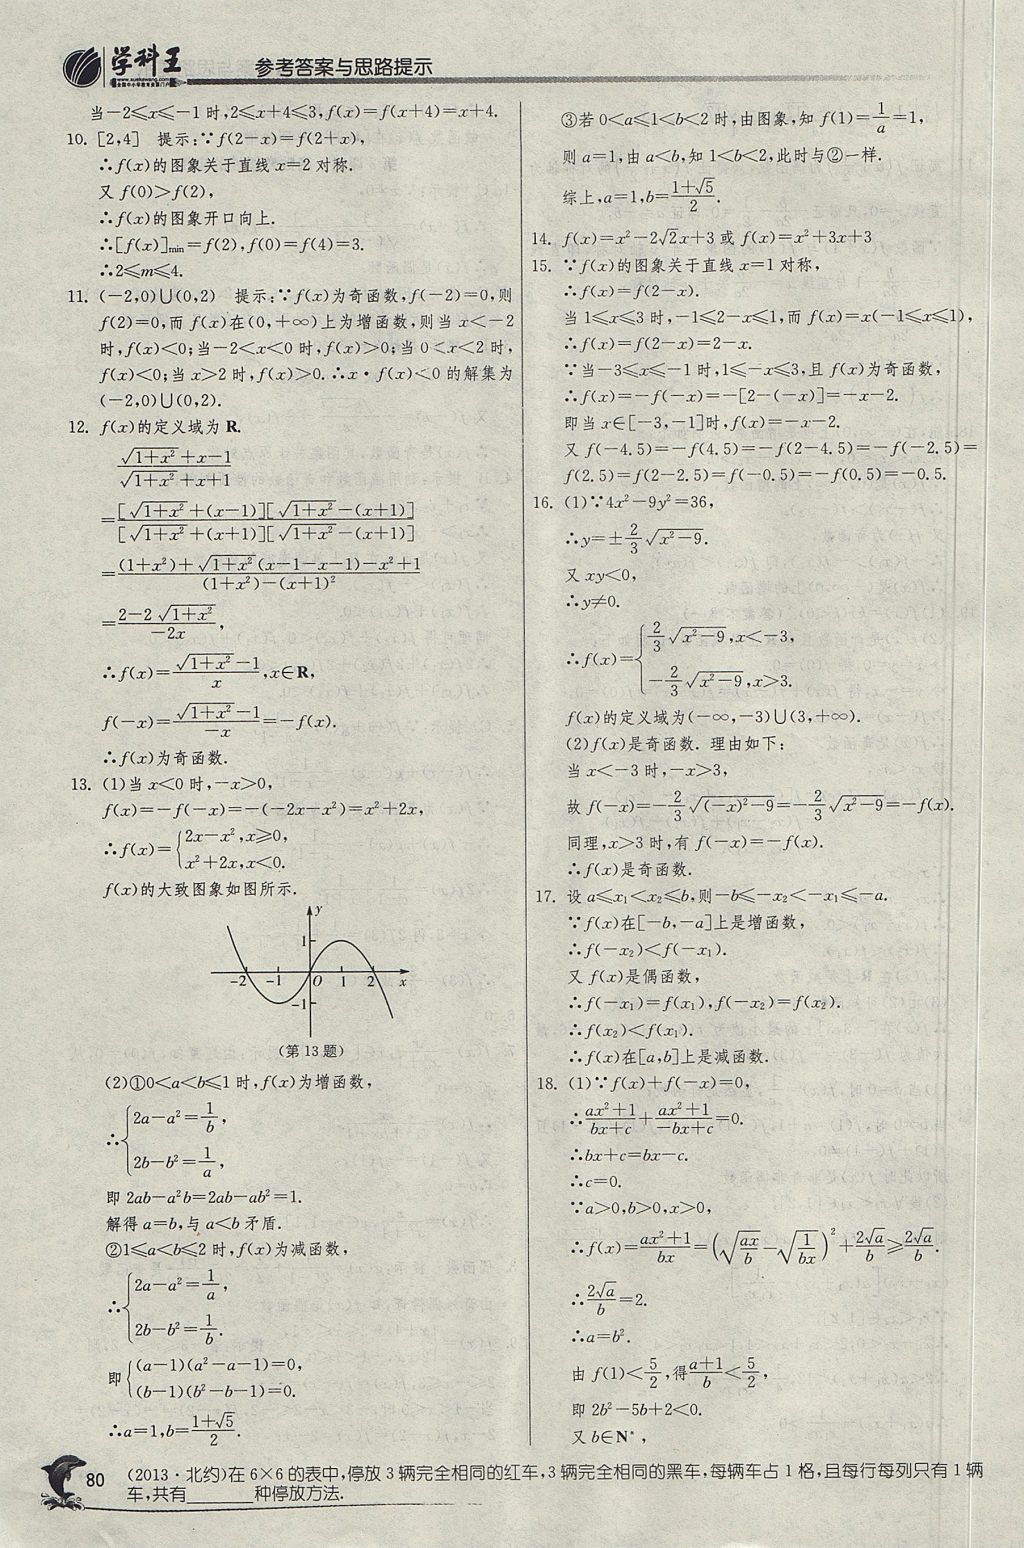 学科王
www.xuekewang.com
参考答案与思路提示
当−2≤x≤−1时,2≤x+4≤3,f(x)=f(x+4)=x+4.
10. [2,4] 提示:∵f(2−x)=f(2+x),
∴f(x)的图象关于直线x=2对称.
又f(0)>f(2),
∴f(x)的图象开口向上.
∴[f(x)]min=f(2),f(0)=f(4)=3.
∴2≤m≤4.
11. (−2,0)∪(0,2) 提示:∵f(x)为奇函数,f(−2)=0,则
f(2)=0,而f(x)在(0,+∞)上为增函数,则当x<−2
时,f(x)<0;当−2<x<0时,f(x)>0;当0<x<2时,
f(x)<0;当x>2时,f(x)>0.∴x·f(x)<0的解集为
(−2,0)∪(0,2).
12. f(x)的定义域为R.
(√(1+x²)+x−1)/(√(1+x²)+x+1)
=([√(1+x²)+(x−1)][√(1+x²)−(x+1)])/([√(1+x²)+(x+1)][√(1+x²)−(x+1)])
=((1+x²)+√(1+x²)(x−1−x−1)−x²+1)/((1+x²)−(x+1)²)
=(2−2√(1+x²))/(−2x),
∴f(x)=(√(1+x²)−1)/x,x∈R,
f(−x)=(√(1+x²)−1)/(−x)=−f(x).
∴f(x)为奇函数.
13. (1)当x<0时,−x>0,
f(x)=−f(−x)=−(−2x−x²)=x²+2x,
∴f(x)={2x−x²,x≥0,
x²+2x,x<0.
f(x)的大致图象如图所示.
y
1
−2 −1 O 1 2 x
−1
(第13题)
(2)①0<a<b≤1时,f(x)为增函数,
∴{2a−a²=1/b,
2b−b²=1/a,
即2ab−a²b=2ab−ab²=1.
解得a=b,与a<b矛盾.
②1≤a<b≤2时,f(x)为减函数,
∴{2a−a²=1/a,
2b−b²=1/b.
即{(a−1)(a²−a−1)=0,
(b−1)(b²−b−1)=0.
∴a=1,b=(1+√5)/2.
③若0<a≤1<b<2时,由图象,知f(1)=1/a=1,
则a=1,由a<b,知1<b<2,此时与②一样.
综上,a=1,b=(1+√5)/2.
14. f(x)=x²−2√2x+3或f(x)=x²+3x+3
15. ∵f(x)的图象关于直线x=1对称,
∴f(x)=f(2−x).
当1≤x≤3时,−1≤2−x≤1,而f(x)=x(−1≤x≤1),
∴f(x)=f(2−x)=2−x.
∵当−3≤x≤−1时,1≤−x≤3,且f(x)为奇函数,
∴f(x)=−f(−x)=−[2−(−x)]=−x−2.
即当x∈[−3,−1]时,f(x)=−x−2.
又f(−4.5)=−f(4.5)=−f(2−4.5)=−f(−2.5)=
f(2.5)=f(2−2.5)=f(−0.5)=−f(0.5)=−0.5.
16. (1)∵4x²−9y²=36,
∴y=±2/3√(x²−9).
又xy<0,
∴y≠0.
∴f(x)={2/3√(x²−9),x<−3,
−2/3√(x²−9),x>3.
f(x)的定义域为(−∞,−3)∪(3,+∞).
(2)f(x)是奇函数.理由如下:
当x<−3时,−x>3,
故f(−x)=−2/3√((−x)²−9)=−2/3√(x²−9)=−f(x).
同理,x>3时,有f(−x)=−f(x).
∴f(x)是奇函数.
17. 设a≤x₁<x₂≤b,则−b≤−x₂<−x₁≤−a.
∵f(x)在[−b,−a]上是增函数,
∴f(−x₂)<f(−x₁).
又f(x)是偶函数,
∴f(−x₁)=f(x₁),f(−x₂)=f(x₂).
∴f(x₂)<f(x₁).
∴f(x)在[a,b]上是减函数.
18. (1)∵f(x)+f(−x)=0,
∴(ax²+1)/(bx+c)+(ax²+1)/(−bx+c)=0.
∴bx+c=bx−c.
∴c=0.
∵a>0,b>0,x>0,
∴f(x)=(ax²+1)/(bx)=(√(ax/b)−√(1/(bx)))²+2√a/b≥2√a/b.
∴2√a/b=2.
∴a=b².
由f(1)<5/2,得(a+1)/b<5/2,
即2b²−5b+2<0.
又b∈N*,
80
(2013·北约)在6×6的表中,停放3辆完全相同的红车,3辆完全相同的黑车,每辆车占1格,且每行每列只有1辆
车,共有______种停放方法.